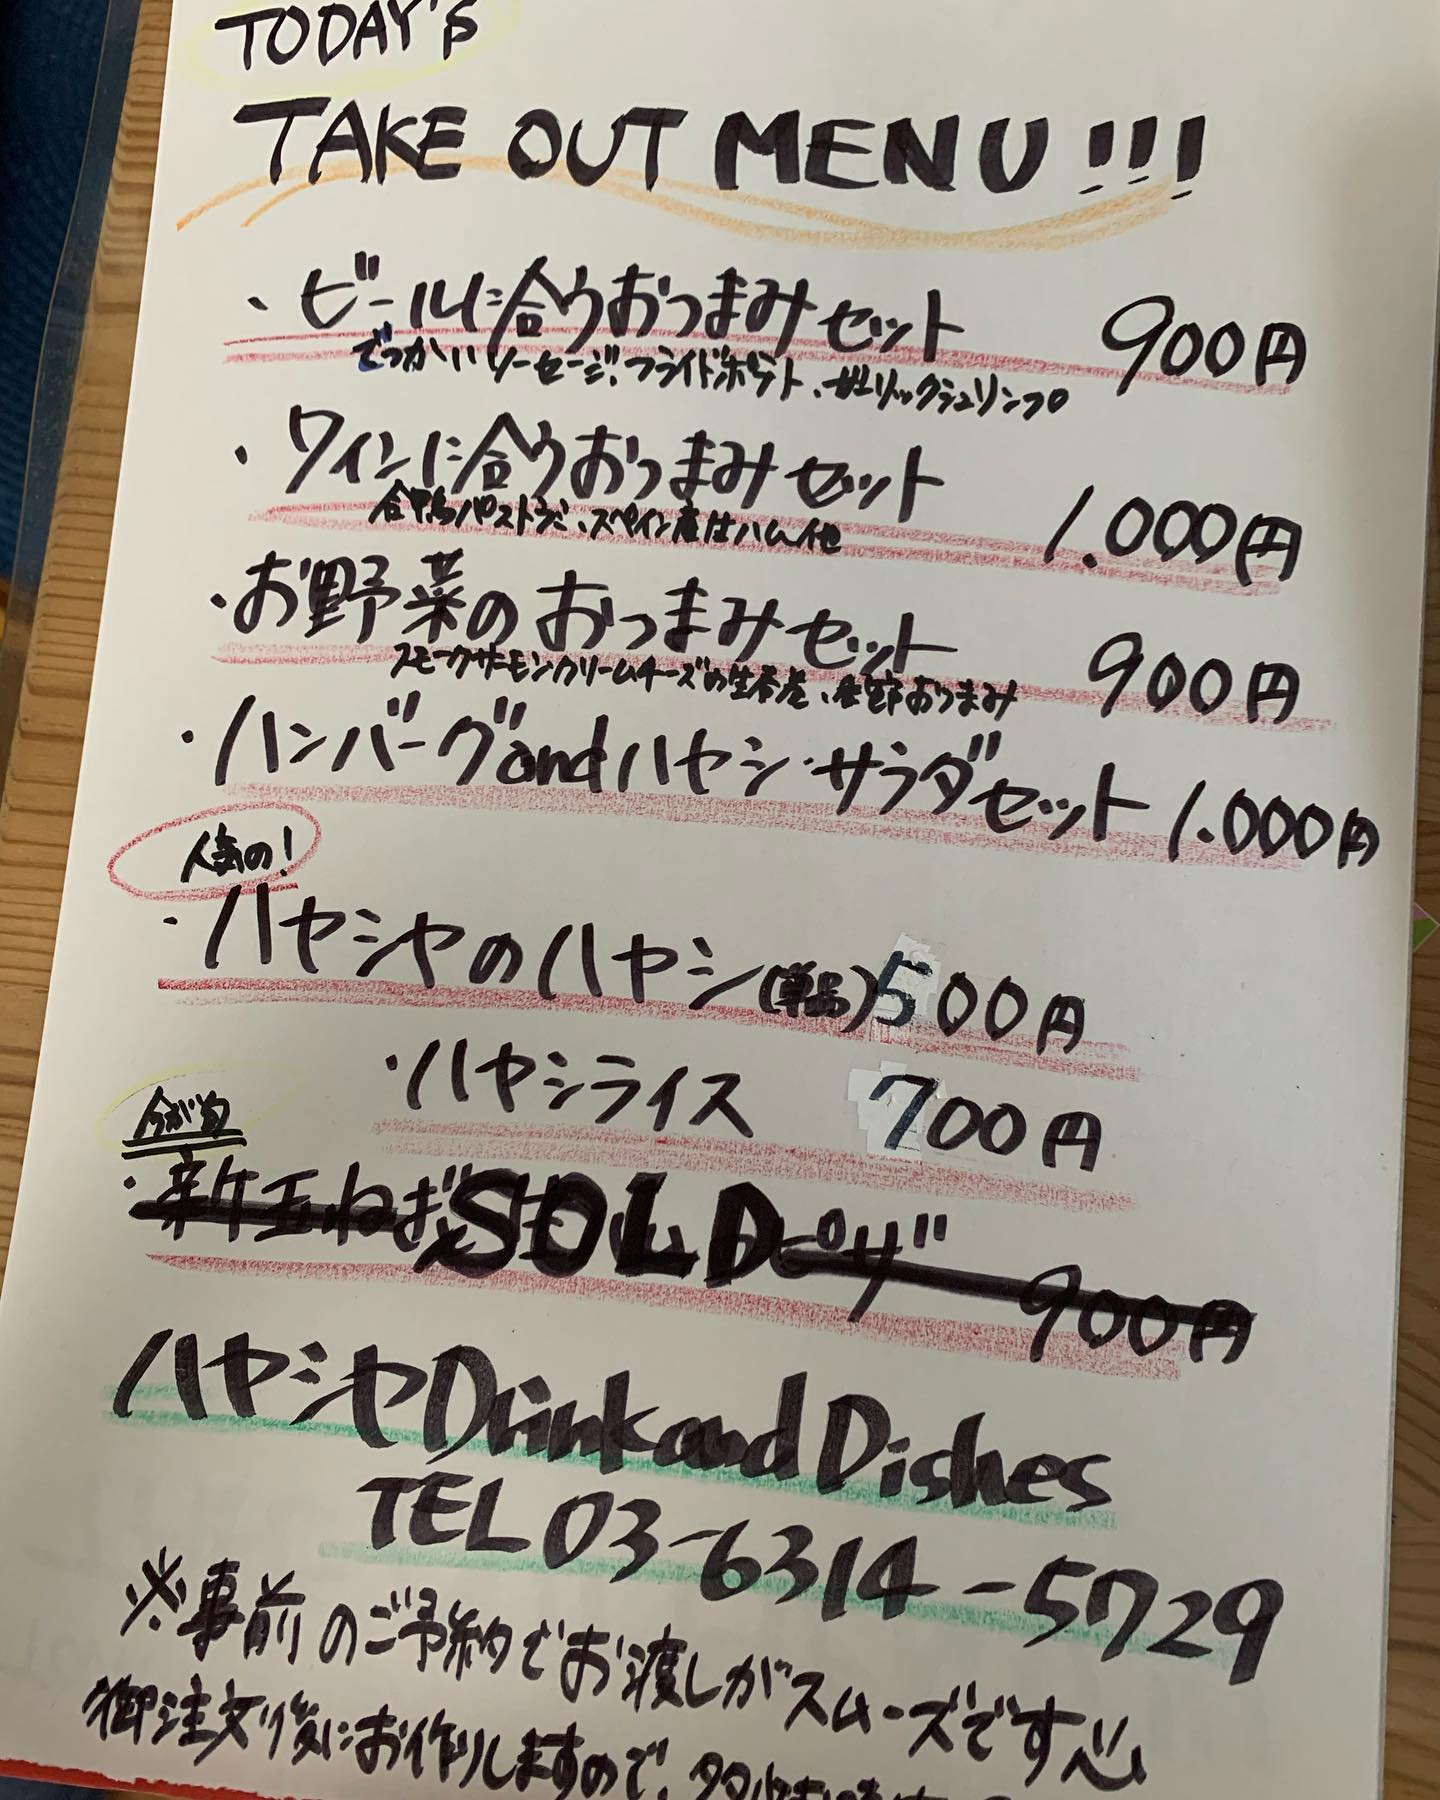 TODAY'S
TAKE OUT MENU!!!
・ビールに合うおつまみセット 900円
でっかいソーセージ、フライドポテト、ガーリックシュリンプ
・ワインに合うおつまみセット 1.000円
合鴨パストラミ、スペイン産生ハム他
・お野菜のおつまみセット 900円
スモークサーモンクリームチーズの生春巻、お野菜おつまみ
・ハンバーグandハヤシ・サラダセット 1.000円
人気の!
・ハヤシヤのハヤシ(単品)500円
・ハヤシライス 700円
今が旬
・新玉ねぎ SOLD ピザ 900円
ハヤシヤ Drink and Dishes
TEL 03-6314-5729
※事前のご予約でお渡しがスムーズです
御注文後にお作りしますので、多少